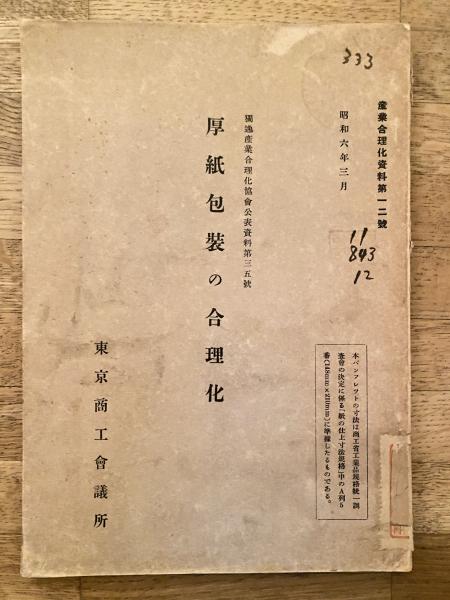 333
産業合理化資料第一二號
昭和六年三月
11
843
12
獨逸産業合理化協會公表資料第三五號
厚紙包装の合理化
東京商工會議所
本パンフレツトの寸法は商工省工業品規格統一調
査會の決定に係る「紙の仕上寸法規格」中のA列5
番(148mm×210mm)に準據したるものである。